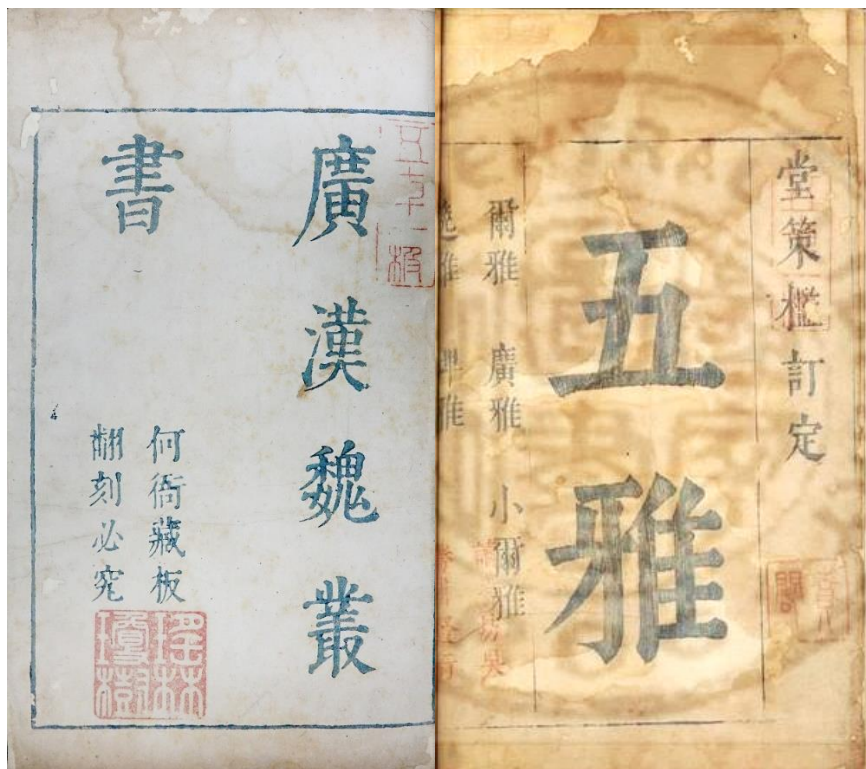 堂策檻訂定
五雅
爾雅 廣雅 小爾雅
逸雅 埤雅
廣漢魏叢
書
何衙藏板
翻刻必究
瑤林
瓊樹